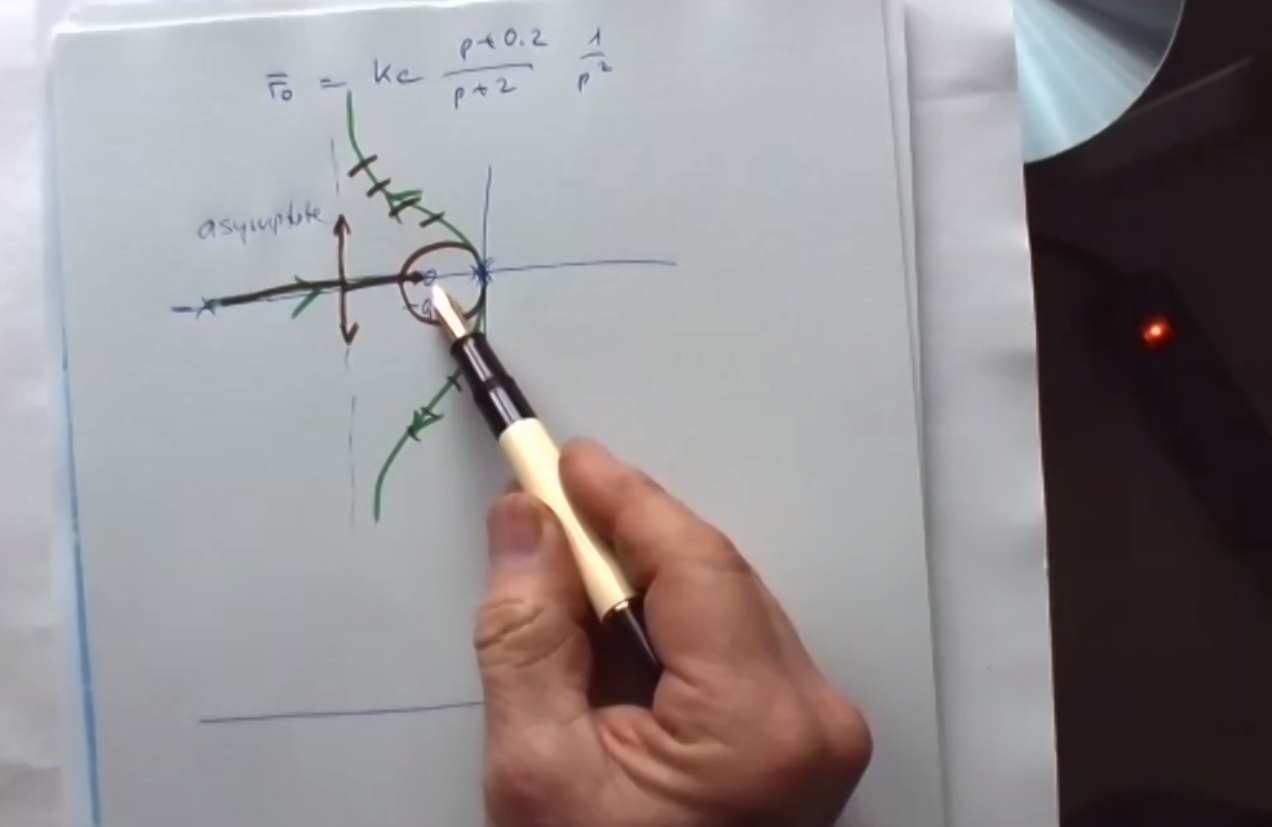 r̄₀ = kc (p+0.2)/(p+2) 1/p²
asymptote